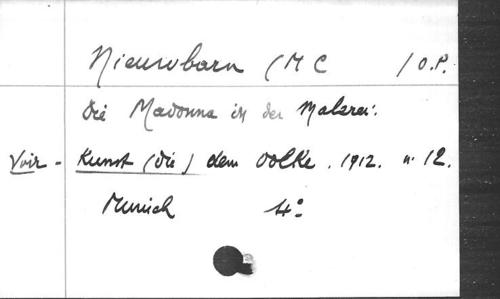 Nieuwbarn (M C / O.P.
Die Madonna in der Malerei.
Voir - Kunst (Die) dem Volke. 1912. n. 12.
Munich 4°